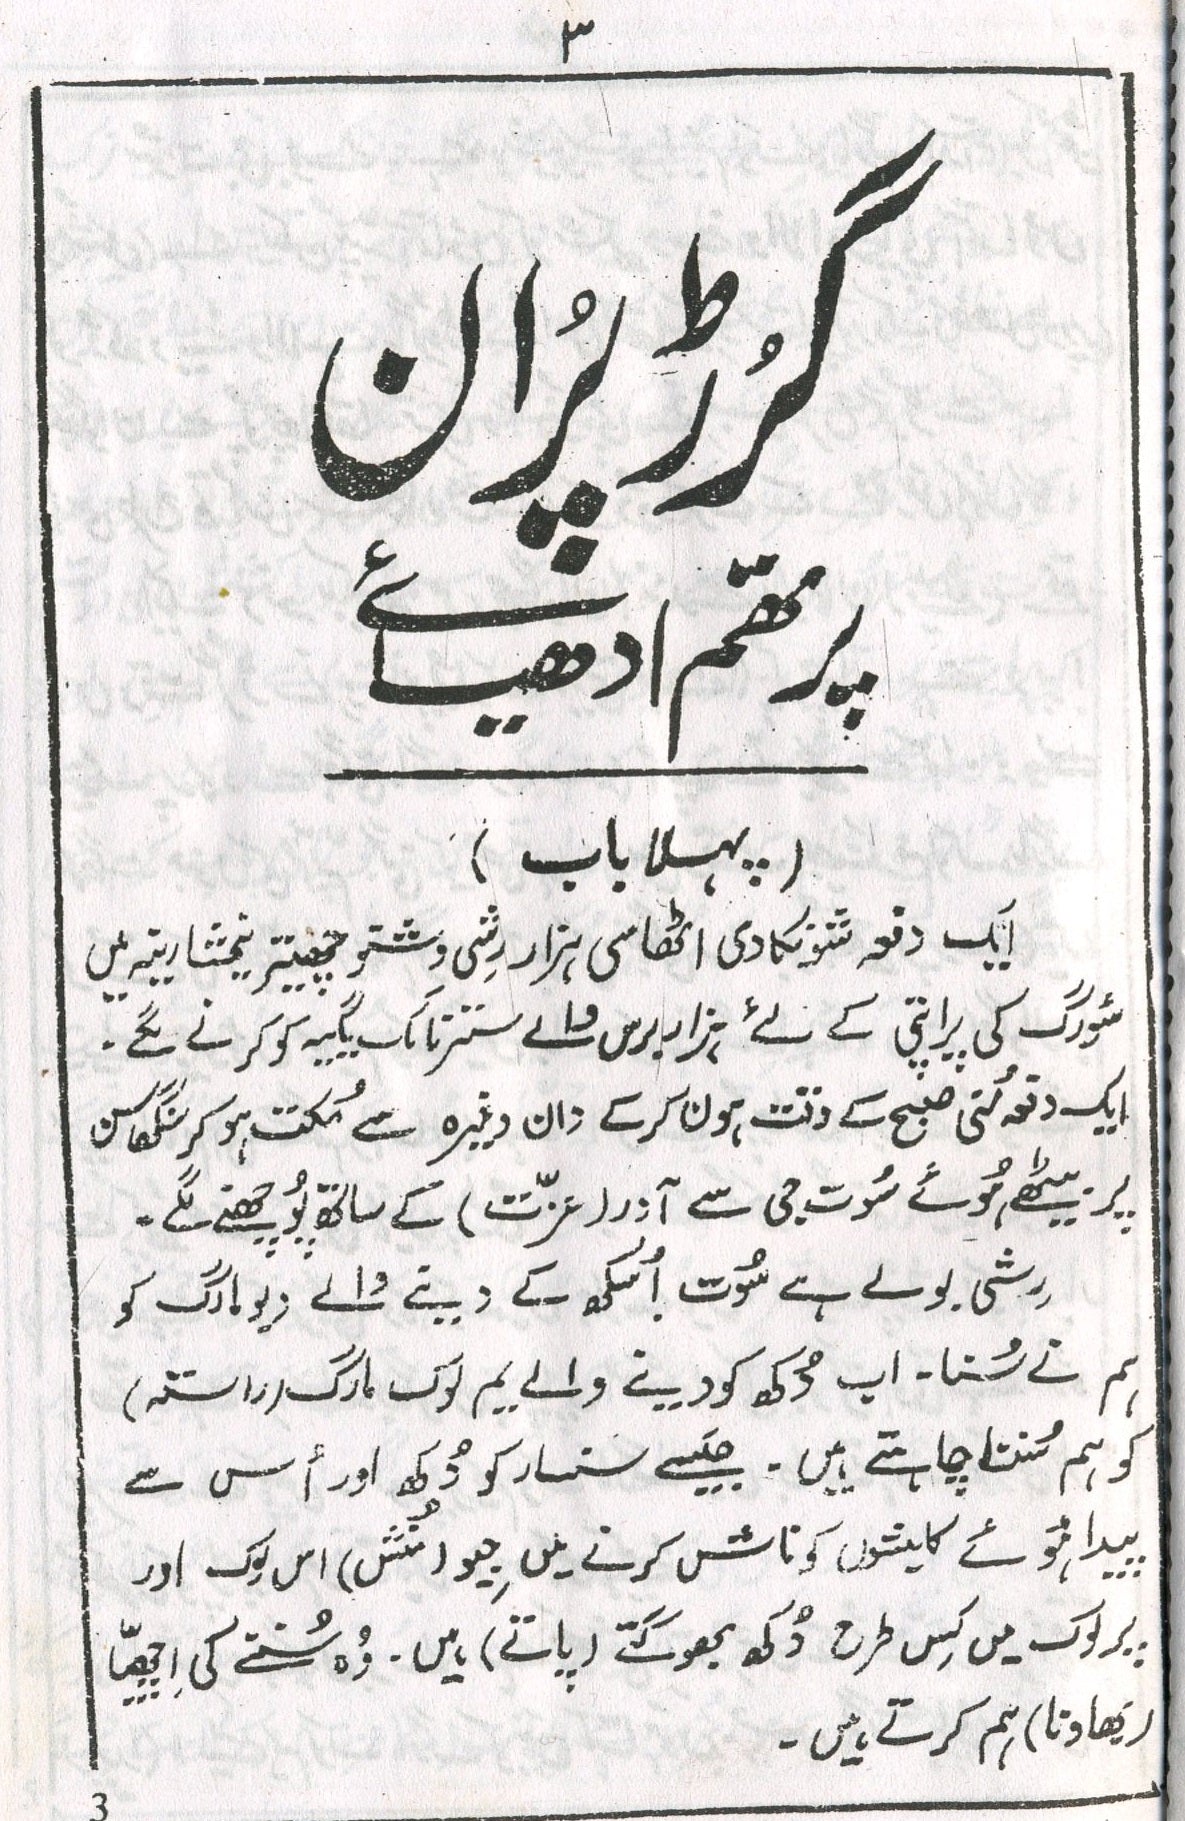 ۳
گرُڑ پرُان
پرتھّم ادھیائے
(پہلا باب)
ایک دفعہ شونکادی اٹھاسی ہزار رِشی وشنو چھیتر نیمشارنیہ میں
سَورگ کی پراپتی کے لئے ہزار برس والے ستر نامک یگیہ کو کرنے لگے۔
ایک دفعہ مُنی صبح کے وقت ہون کرکے دان وغیرہ سے مُکت ہو کر سنگھاسن
پر بیٹھے ہُوئے سُوت جی سے آدر (عزّت) کے ساتھ پُوچھنے لگے۔
رِشی بولے ہے سُوت! سُکھ کے دینے والے دیو مارگ کو
ہم نے سُنا۔ اب دُکھ کو دینے والے یم لوک مارگ (راستہ)
کو ہم سُننا چاہتے ہیں۔ جیسے سنسار کو دُکھ اور اُس سے
پیدا ہُوئے کلیشوں کو ناش کرنے میں جِیو (منُش) اس لوک اور
پرلوک میں کِس طرح دُکھ بھوگتے (پاتے) ہیں۔ وُہ سُننے کی اِچھّیا
(بھاونا) ہم کرتے ہیں۔
3